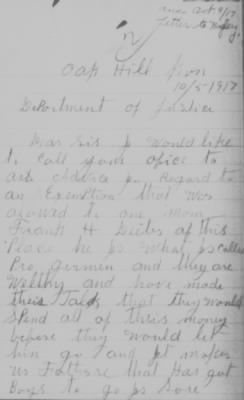 Oct 9/17
letter to
Oak Hill
10/5-1917
Department of Justice
Dear Sir I Would like
to call your ofice to
ask Advice in Regard to
an Exemption that Was
alowed to one Mom
Frank H of this
Place he is What is called
Pro germen and they are
Welthy and have made
their that they would
Spend all of thris money
before they Would let
him go and it makes
us Fathers that Has got
Boys to go is Sore